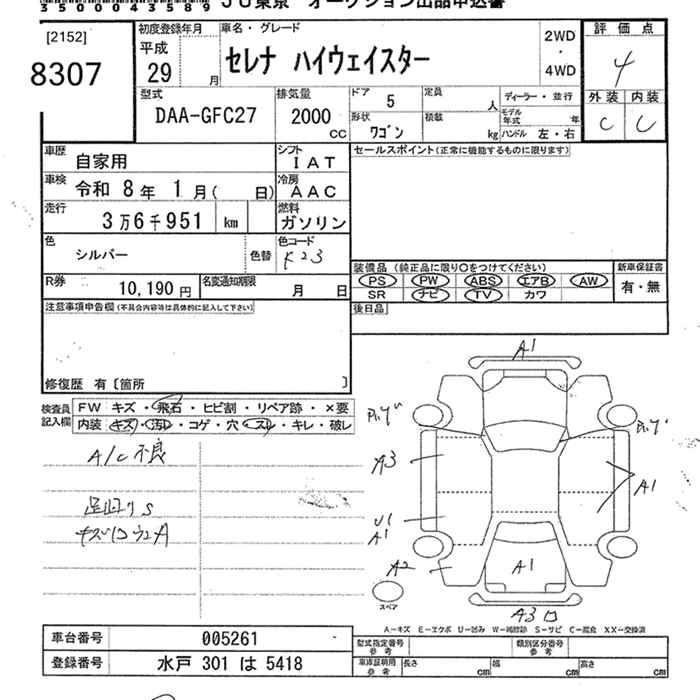 35000043589 JU東京 オークション出品申込書
[2152]
8307
初度登録年月
平成
29 月
車名・グレード
セレナ ハイウェイスター
2WD
・
4WD
評価点
4
外装 内装
C C
型式
DAA-GFC27
排気量
2000
CC
ドア 5
定員 人
形状 ワゴン
積載 kg
ディーラー・並行
モデル年式 年
ハンドル 左・右
車歴 自家用
シフト IAT
セールスポイント(正常に機能するものに限ります)
車検 令和 8年 1月( 日)
冷房 AAC
走行 3万6千951 km
燃料 ガソリン
色 シルバー
色替
色コード K23
R券 10,190円
名変通知期限 月 日
装備品 (純正品に限り○をつけてください)
PS PW ABS エアB AW
SR ナビ TV カワ
新車保証書
有・無
後日品
注意事項申告欄(不具合内容等は具体的に記入して下さい)
修復歴 有〔箇所 〕
検査員記入欄
FW キズ・飛石・ヒビ割・リペア跡・×要
内装 キズ・汚れ・コゲ・穴・スレ・キレ・破レ
A/C不良
足回りS
A1
A3
A1
U1
A1
A2
A1
A3
スペア
A-キズ E-エクボ U-凹み W-補修跡 S-サビ C-腐食 XX-交換済
車台番号 005261
登録番号 水戸 301 は 5418
型式指定番号 参考
類別区分番号 参考
車庫証明用 参考
長さ cm 幅 cm 高さ cm